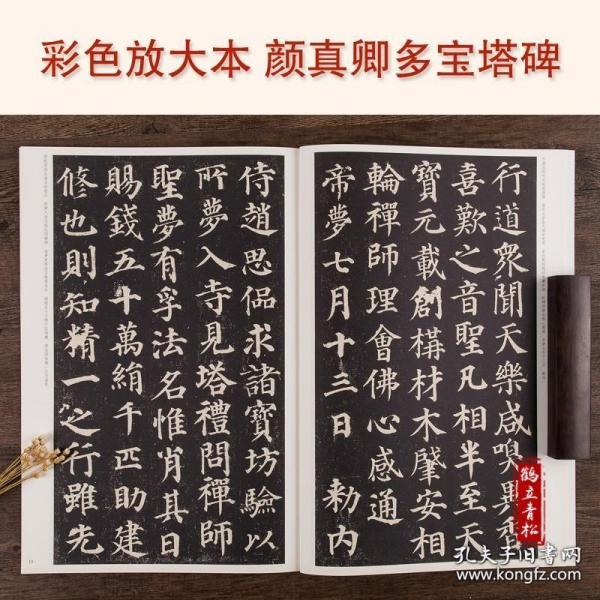 彩色放大本 颜真卿多宝塔碑
行道眾聞天樂咸嗅異香
喜歎之音聖凡相半至天
寶元載創構材木肇安相
輪禪師理會佛心感通
帝夢七月十三日勅內
侍趙思偘求諸寶坊驗以
所夢入寺見塔禮問禪師
聖夢有孚法名惟肖其日
賜錢五十萬絹千匹助建
修也則知精一之行雖先
鶴立青松
孔夫子旧书网
www.kongfz.com